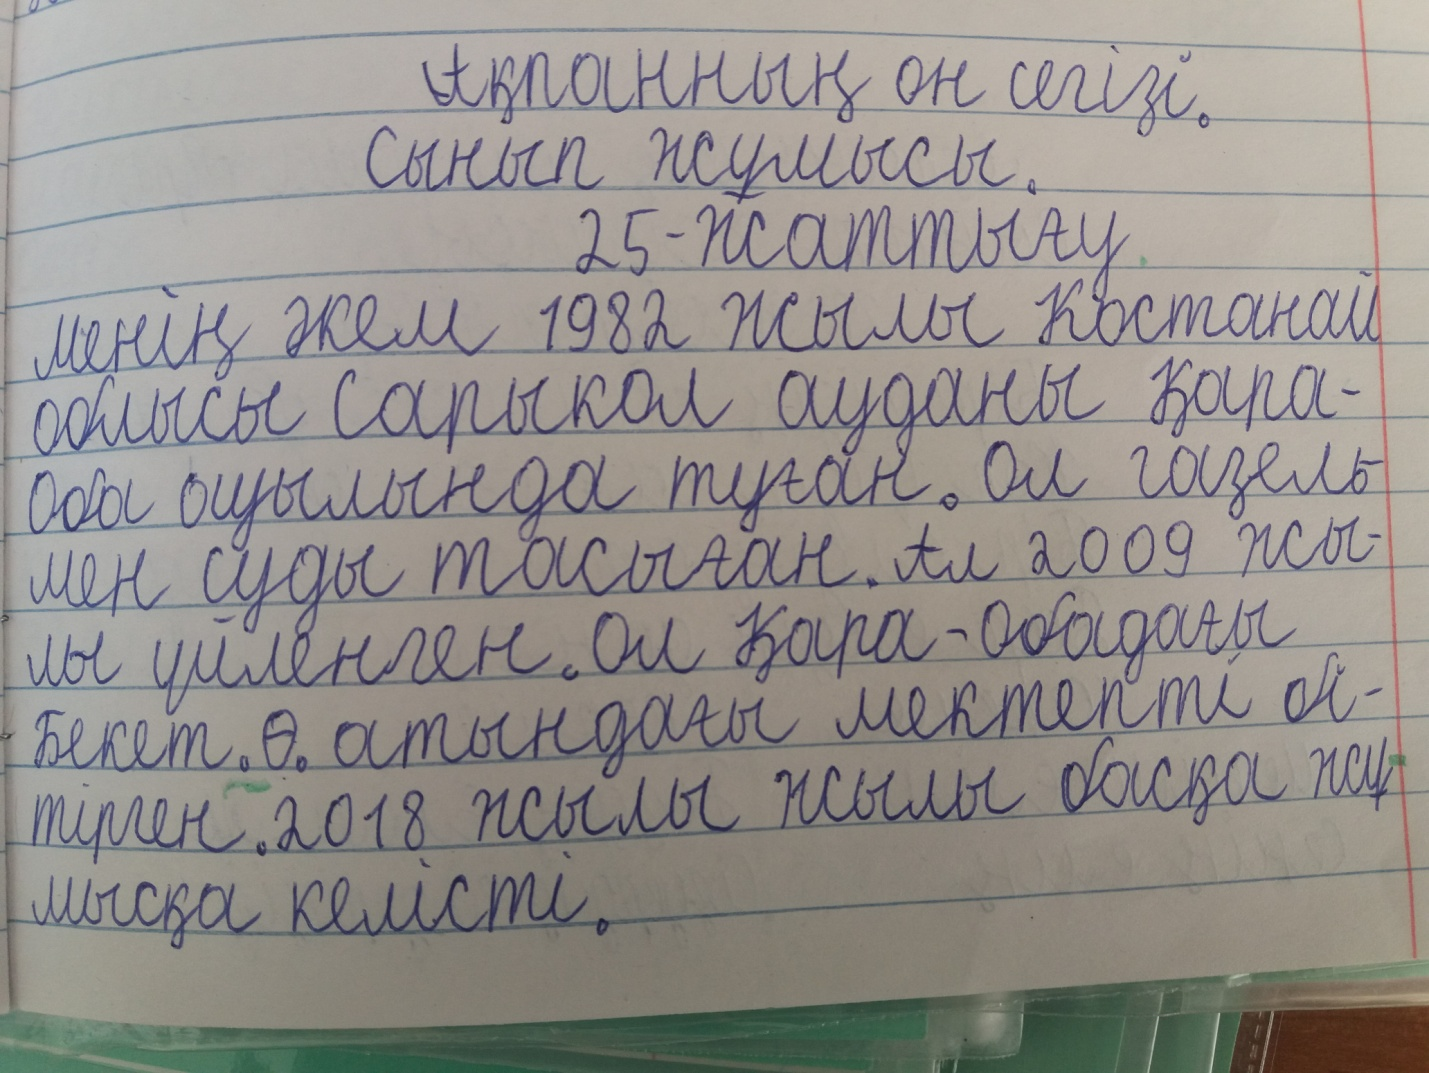 Ақпанның он сегізі.
Сынып жұмысы.
25-жаттығу
менің әкем 1982 жылы Костанай
облысы Сарыкол ауданы Қара-
Оба ауылында туған. Ол газель
мен суды тасыған. Ал 2009 жы-
лы үйленген. Ол Қара-Обадағы
Бекет.Ө. атындағы мектепті бі-
тірген. 2018 жылы жылы басқа жұ
мысқа келісті.